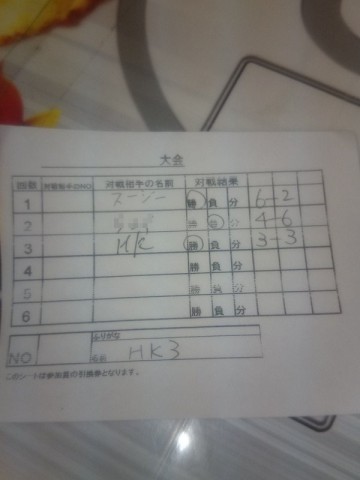 大会
回数 対戦相手のNO 対戦相手の名前 対戦結果
1 スージー 勝 負 分 6-2
2 負 分 4-6
3 H/C 勝 負 分 3-3
4 勝 負 分
5 勝 負 分
6 勝 負 分
ふりがな
NO 名前 HK3
このシートは参加賞の引換券となります。